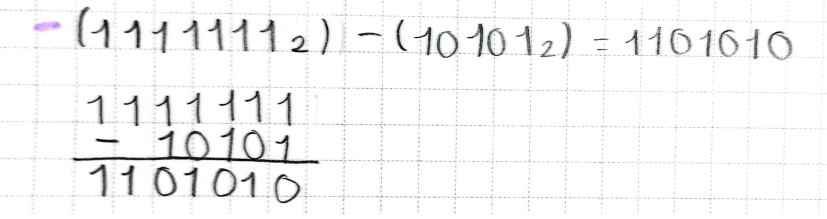 - (1111111₂) - (10101₂) = 1101010
1111111
- 10101
1101010